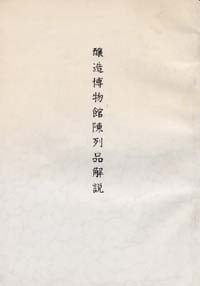 醸造博物館陳列品解説